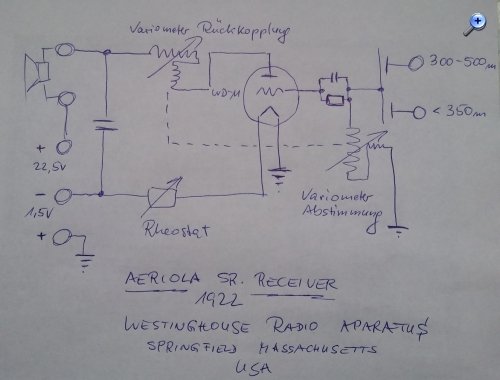 Variometer Rückkopplung
300-500m
WD-11
< 350m
+
22,5V
-
1,5V
+
Rheostat
Variometer
Abstimmung
AERIOLA SR. RECEIVER
1922
WESTINGHOUSE RADIO APARATUS
SPRINGFIELD MASSACHUSETTS
USA